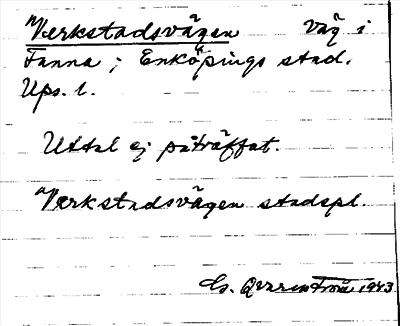 Verkstadsvägen väg i
Fanna ; Enköpings stad.
Ups. l.
Uttal ej påträffat.
Verkstadsvägen stadspl.
G. Qvarnström 1943